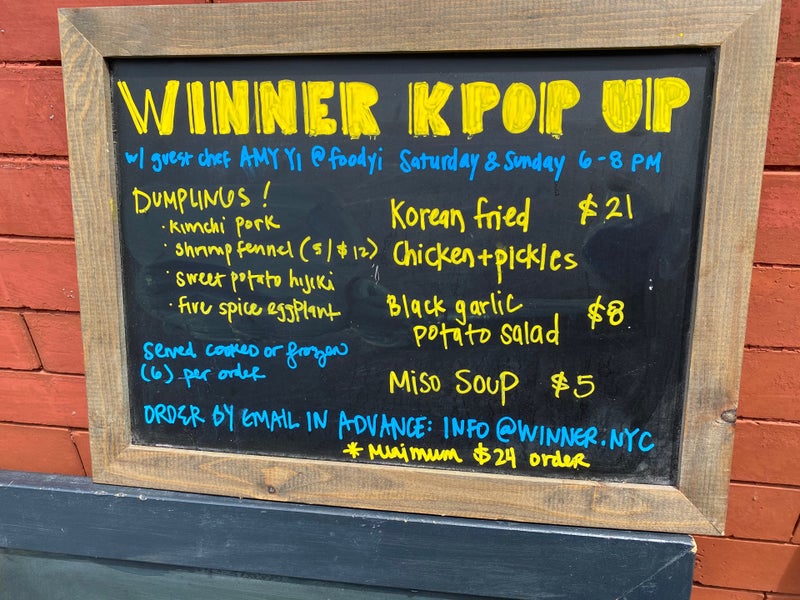 WINNER KPOP UP
w/ guest chef AMY YI @foodyi Saturday & Sunday 6-8 PM
DUMPLINGS!
· kimchi pork
· shrimp fennel (5/$12)
· sweet potato hijiki
· five spice eggplant
Served cooked or frozen
(6) per order
Korean fried $21
Chicken + pickles
Black garlic $8
potato salad
Miso Soup $5
ORDER BY EMAIL IN ADVANCE: INFO@WINNER.NYC
* Minimum $24 order